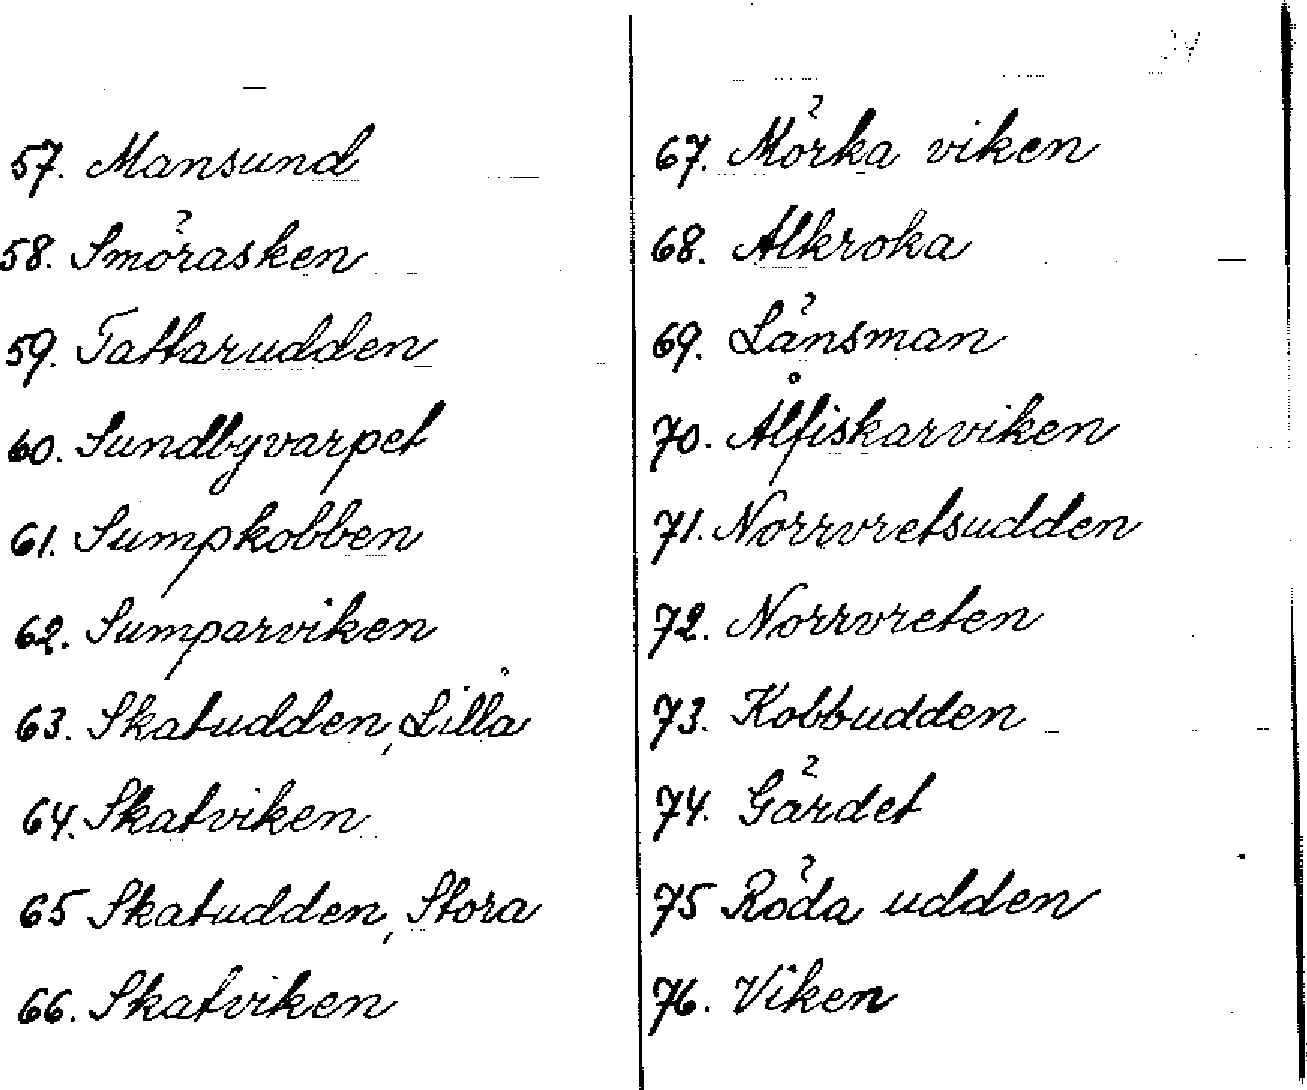 57. Mansund
58. Smörasken
59. Tattarudden
60. Sundbyvarpet
61. Sumpkobben
62. Sumparviken
63. Skatudden, Lilla
64. Skatviken
65 Skatudden, Stora
66. Skatviken
67. Mörka viken
68. Alkroka
69. Länsman
70. Ålfiskarviken
71. Norrvretsudden
72. Norrvreten
73. Kobbudden
74. Gärdet
75 Röda udden
76. Viken